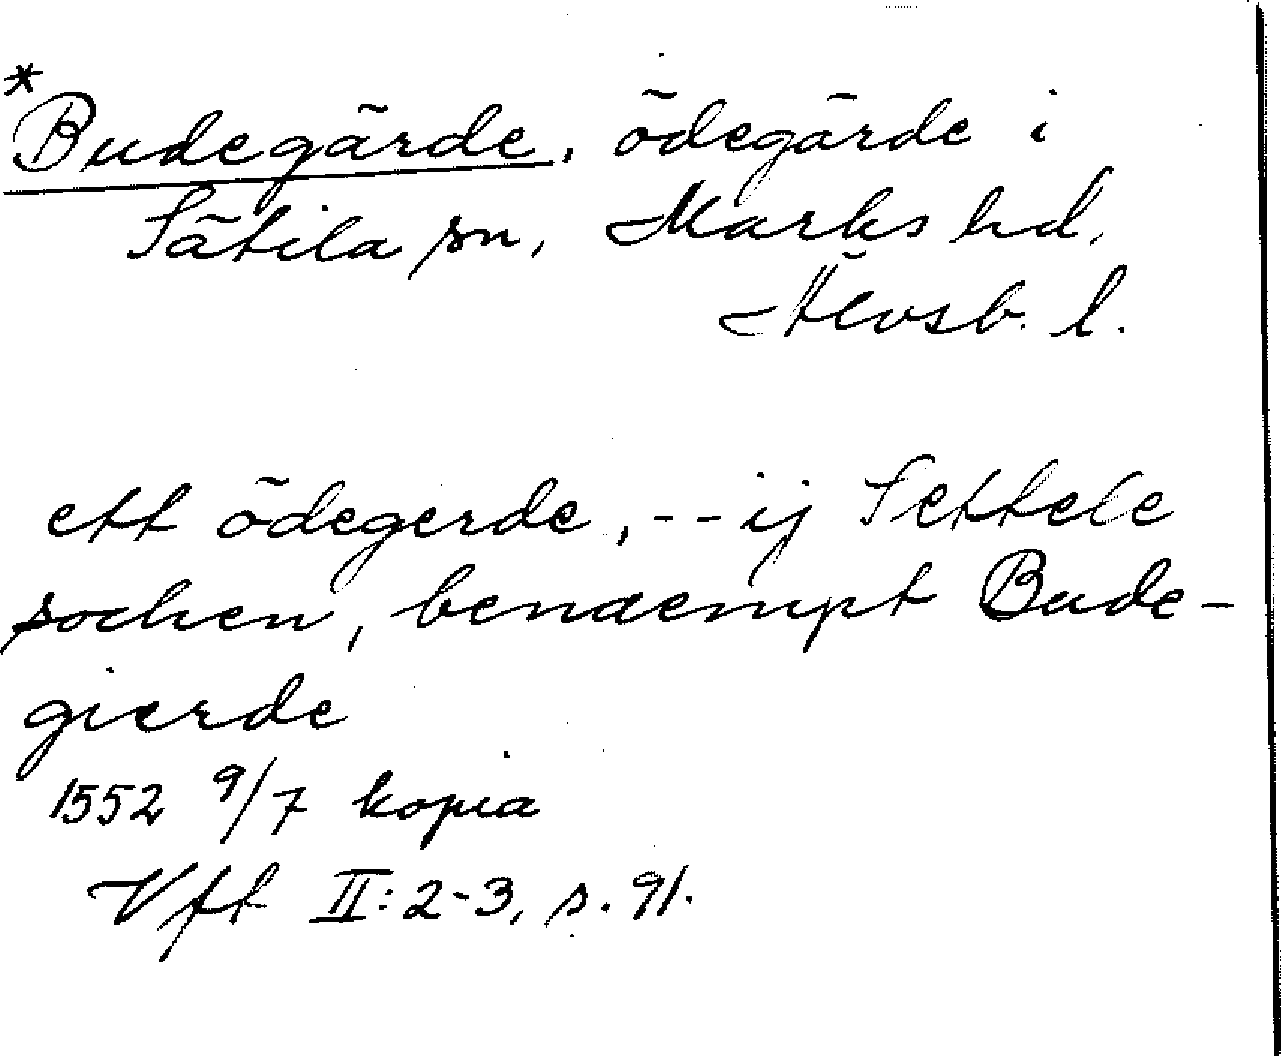 *
Budegärde, ödegärde i
Sätila sn, Marks hd,
Älvsb. l.
ett ödegerde, -- ij Settele
sochen, benaempt Bude-
gierde
1552 9/7 kopia
Vft II: 2-3, s. 91.